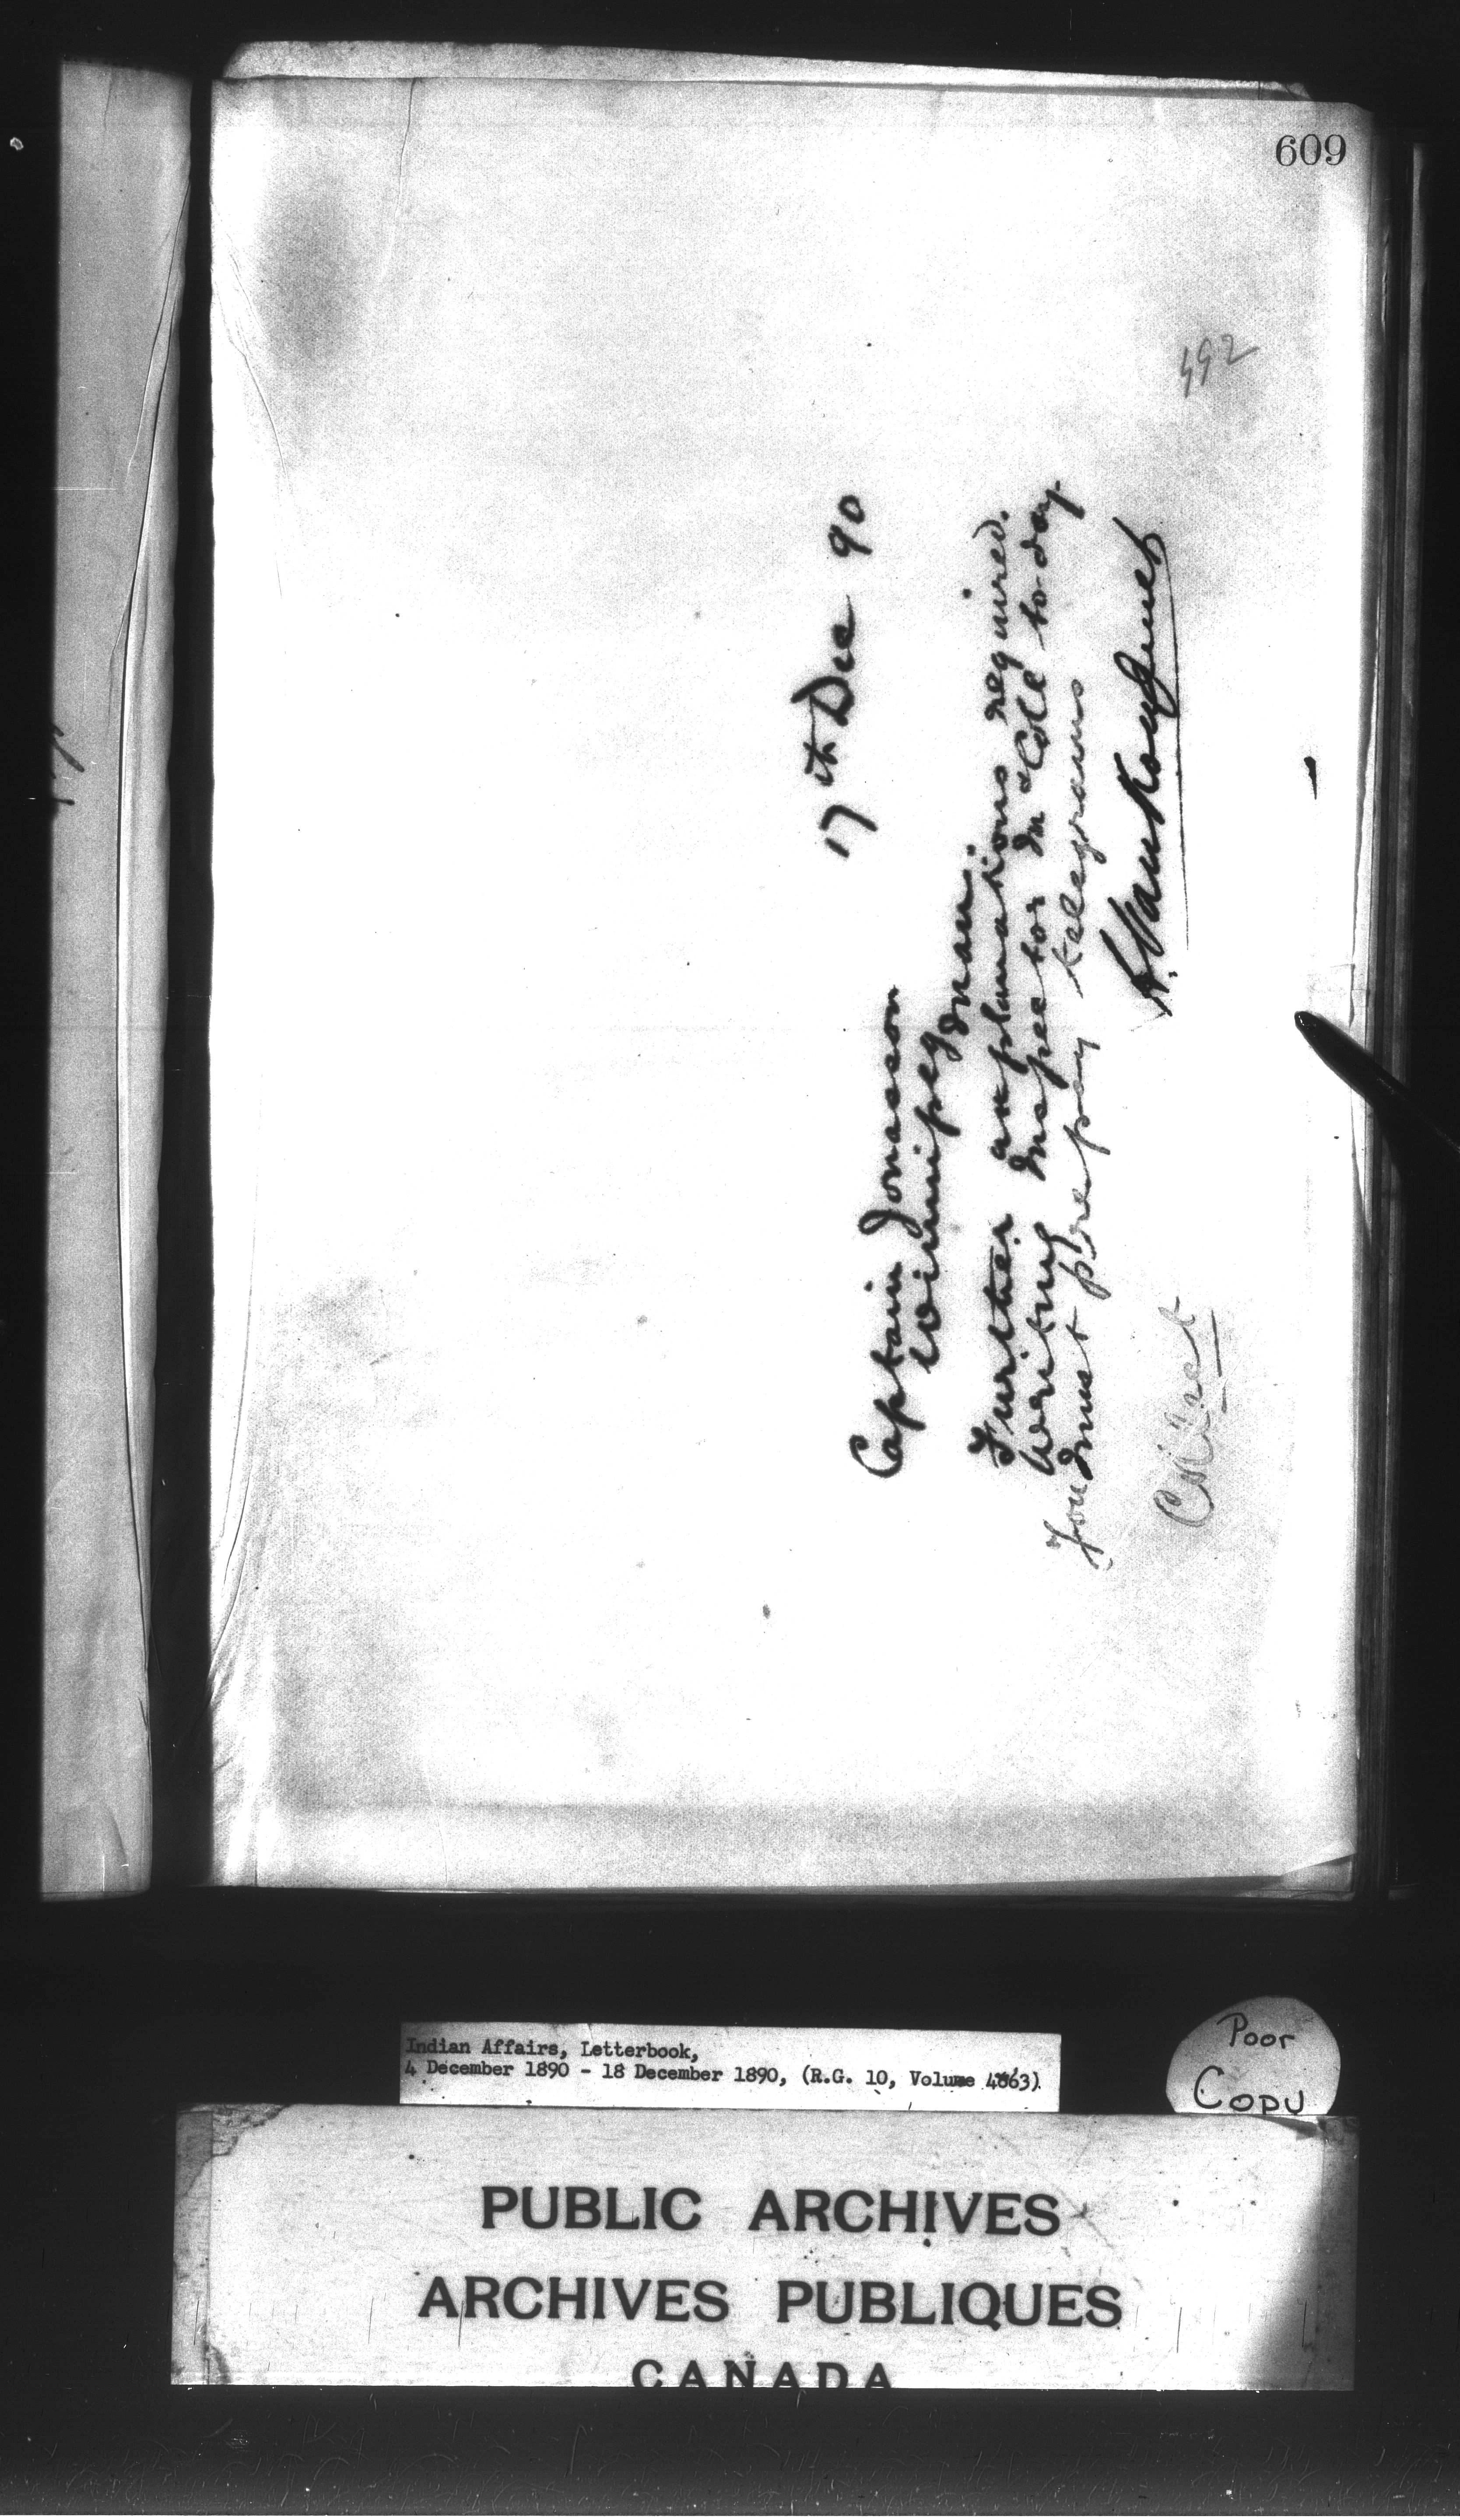 609
492
17th Dec 90
Captain Jonasson
Winnipeg Man.
Further explanations required.
Writing Inspector McColl to day.
You must prepay telegrams
L. Vankoughnet
Collect
Indian Affairs, Letterbook,
4 December 1890 - 18 December 1890, (R.G. 10, Volume 4863)
Poor
Copy
PUBLIC ARCHIVES
ARCHIVES PUBLIQUES
CANADA